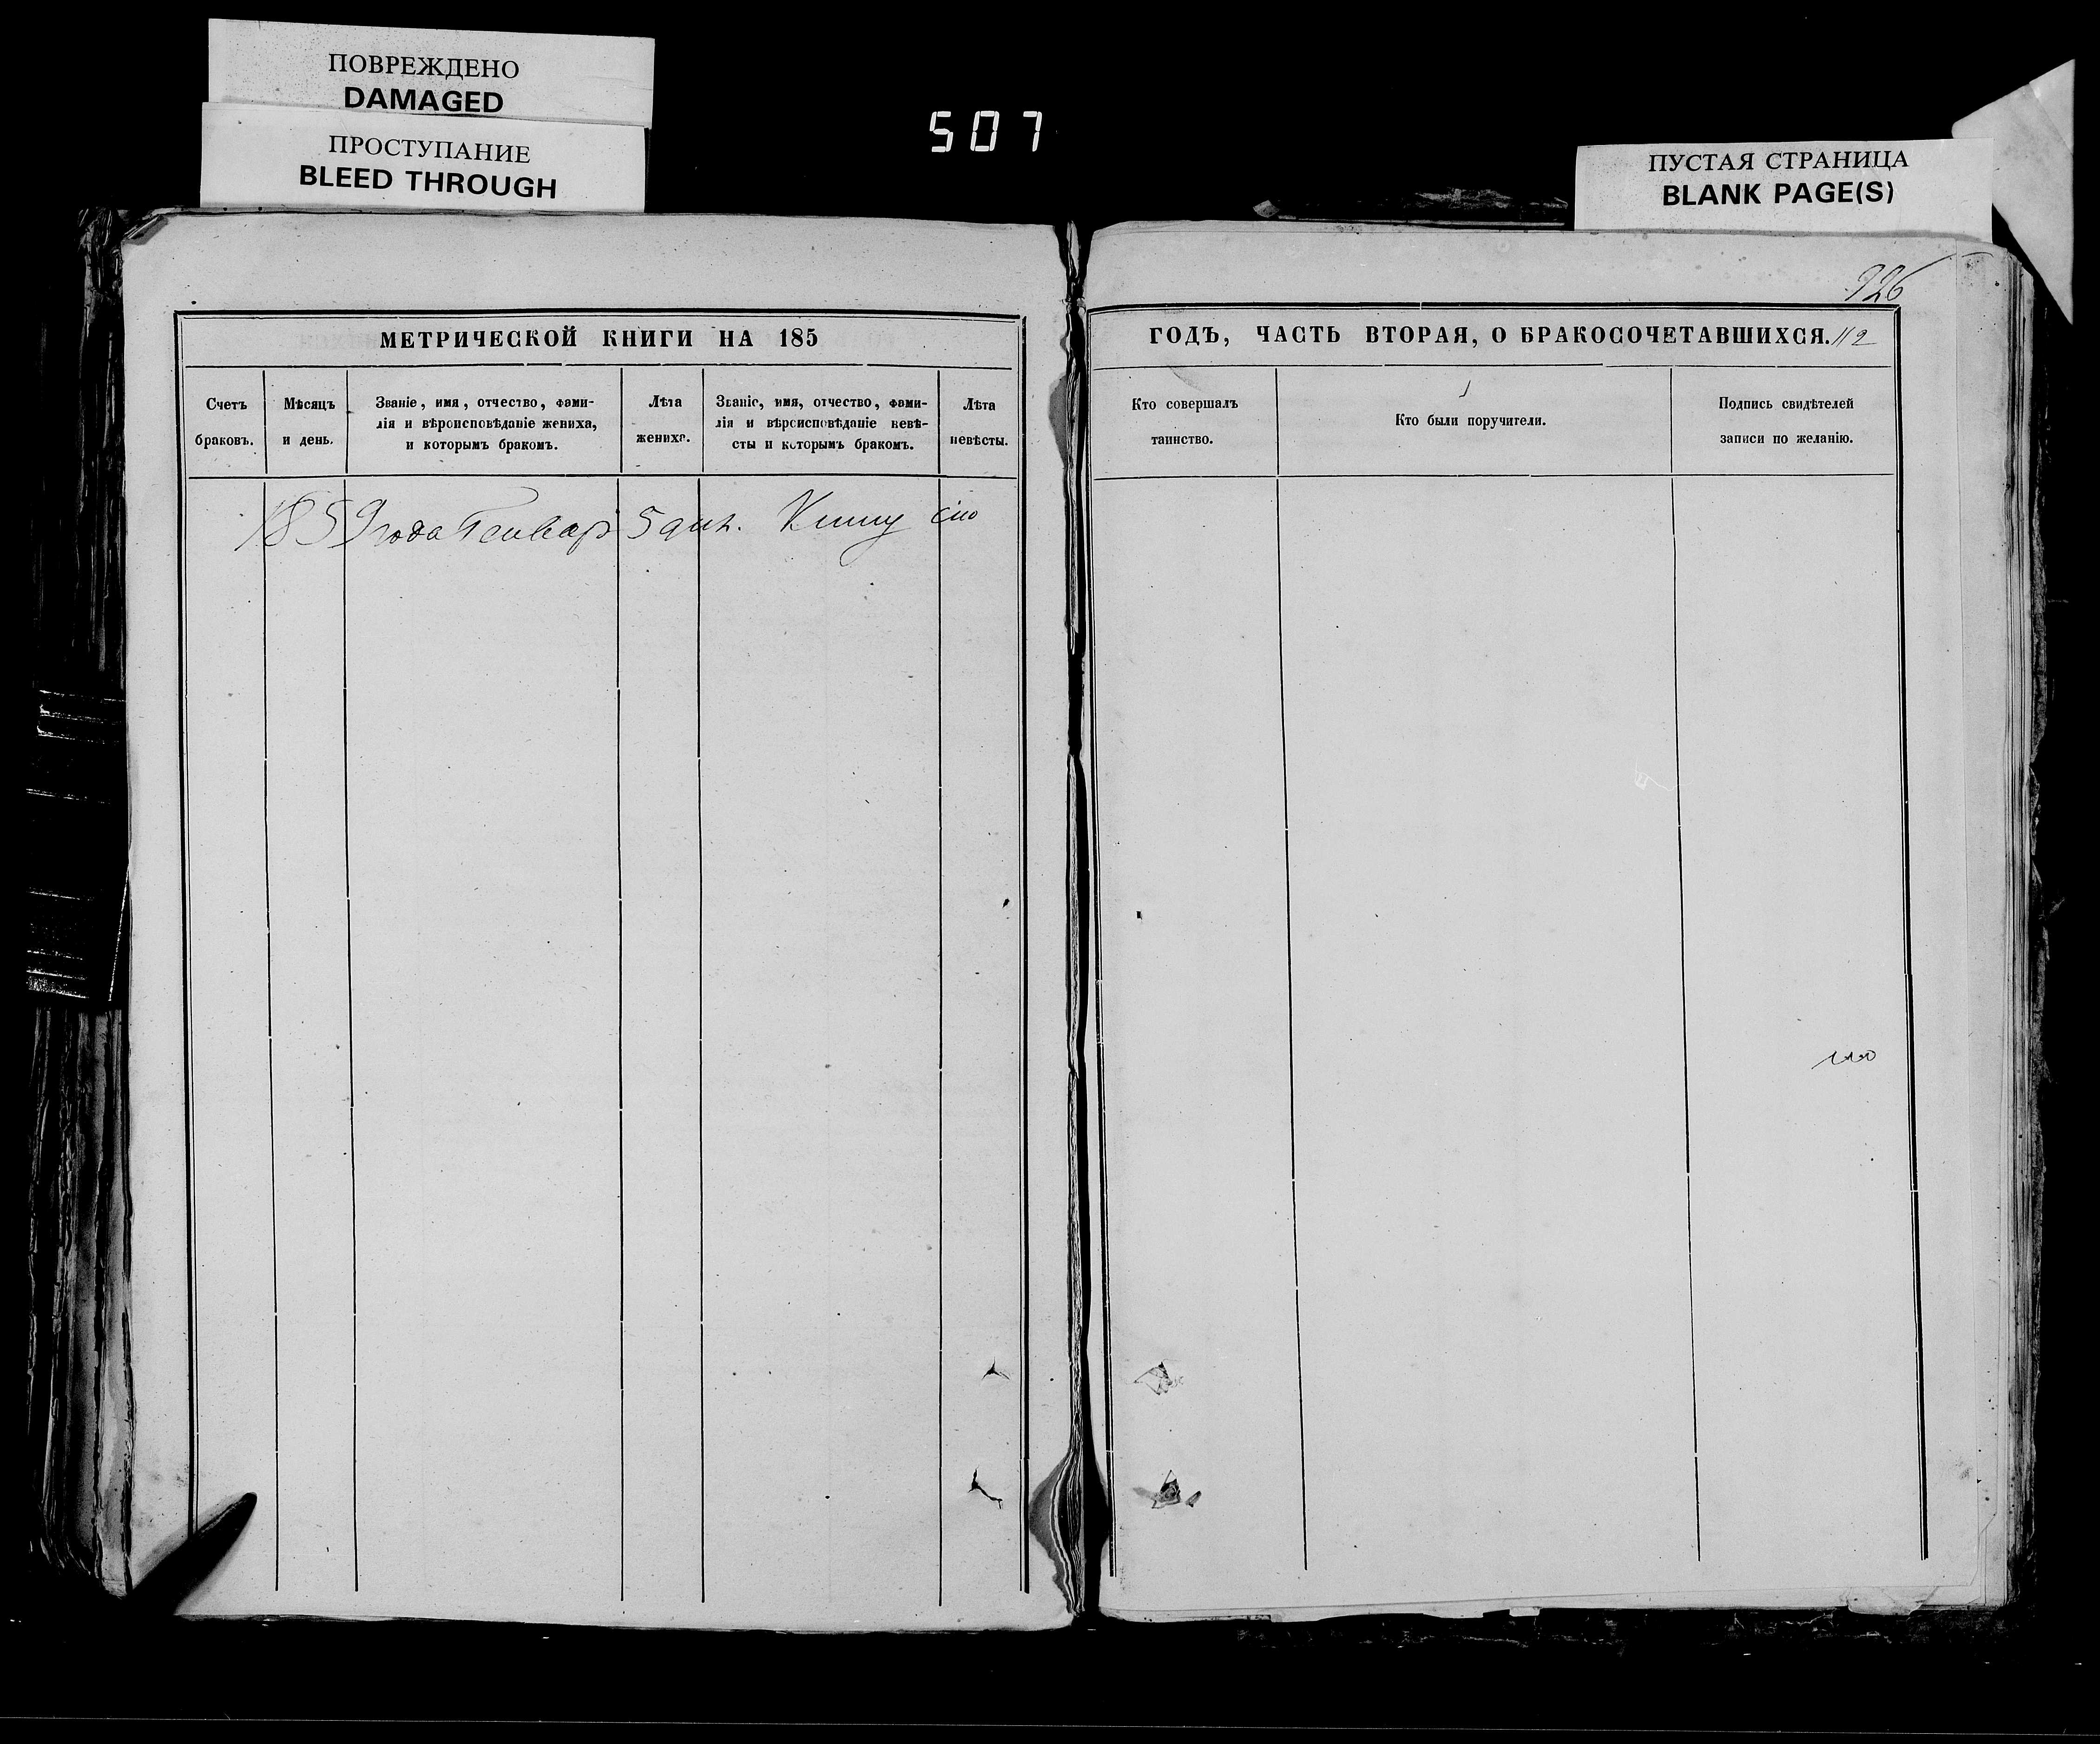 ПОВРЕЖДЕНО
DAMAGED
ПРОСТУПАНИЕ
BLEED THROUGH
507
ПУСТАЯ СТРАНИЦА
BLANK PAGE(S)
926
МЕТРИЧЕСКОЙ КНИГИ НА 185
Счетъ
браковъ.
Мѣсяцъ
и день.
Званіе, имя, отчество, фами-
лія и вѣроисповѣданіе жениха,
и которымъ бракомъ.
Лѣта
жениха.
Званіе, имя, отчество, фами-
лія и вѣроисповѣданіе невѣ-
сты и которымъ бракомъ.
Лѣта
невѣсты.
1859 года Генваря 5 дня. Книгу сію
ГОДЪ, ЧАСТЬ ВТОРАЯ, О БРАКОСОЧЕТАВШИХСЯ. 112
Кто совершалъ
таинство.
Кто были поручители.
Подпись свидѣтелей
записи по желанію.